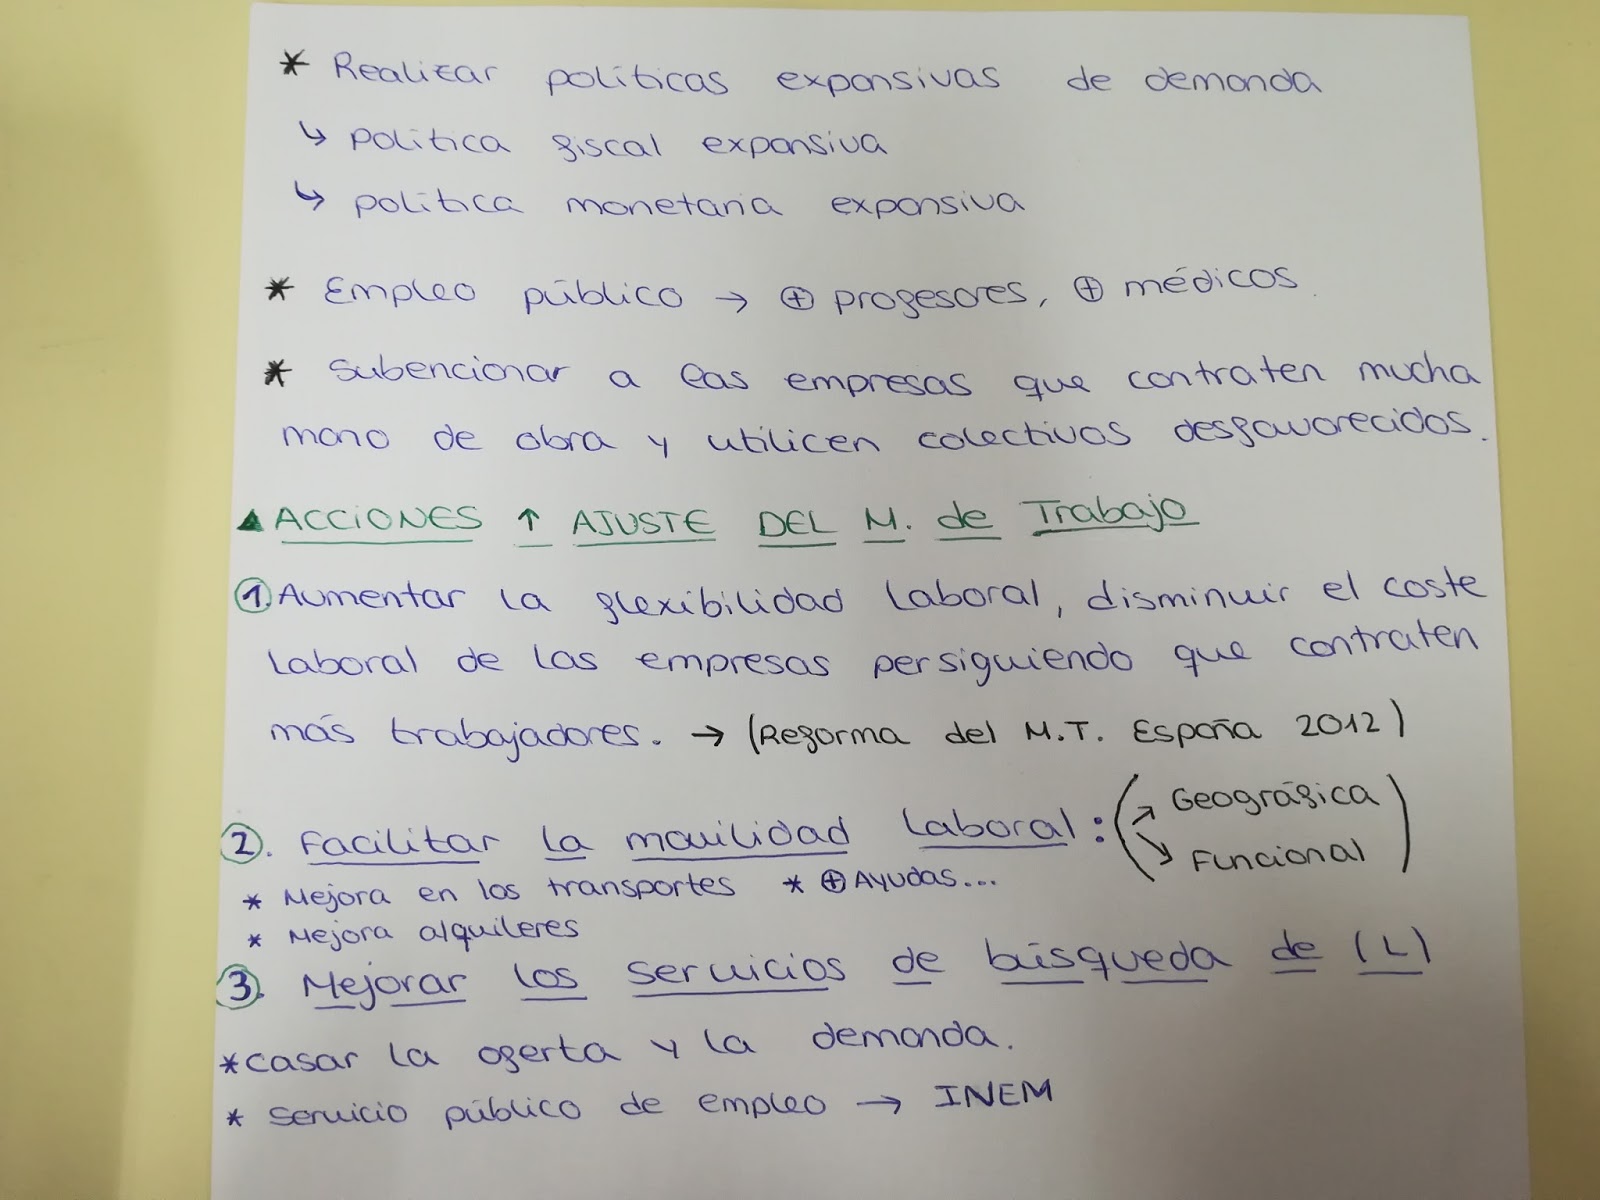 * Realizar políticas expansivas de demanda
↳ política fiscal expansiva
↳ política monetaria expansiva
* Empleo público → ⊕ profesores, ⊕ médicos.
* Subencionar a las empresas que contraten mucha
mano de obra y utilicen colectivos desfavorecidos.
▲ ACCIONES ↑ AJUSTE DEL M. de Trabajo
1. Aumentar la flexibilidad laboral, disminuir el coste
laboral de las empresas persiguiendo que contraten
más trabajadores. → (Reforma del M.T. España 2012)
2. Facilitar la movilidad laboral: (↗ Geográfica
↘ Funcional)
* Mejora en los transportes * ⊕ Ayudas...
* Mejora alquileres
3. Mejorar los servicios de búsqueda de (L)
* casar la oferta y la demanda.
* Servicio público de empleo → INEM